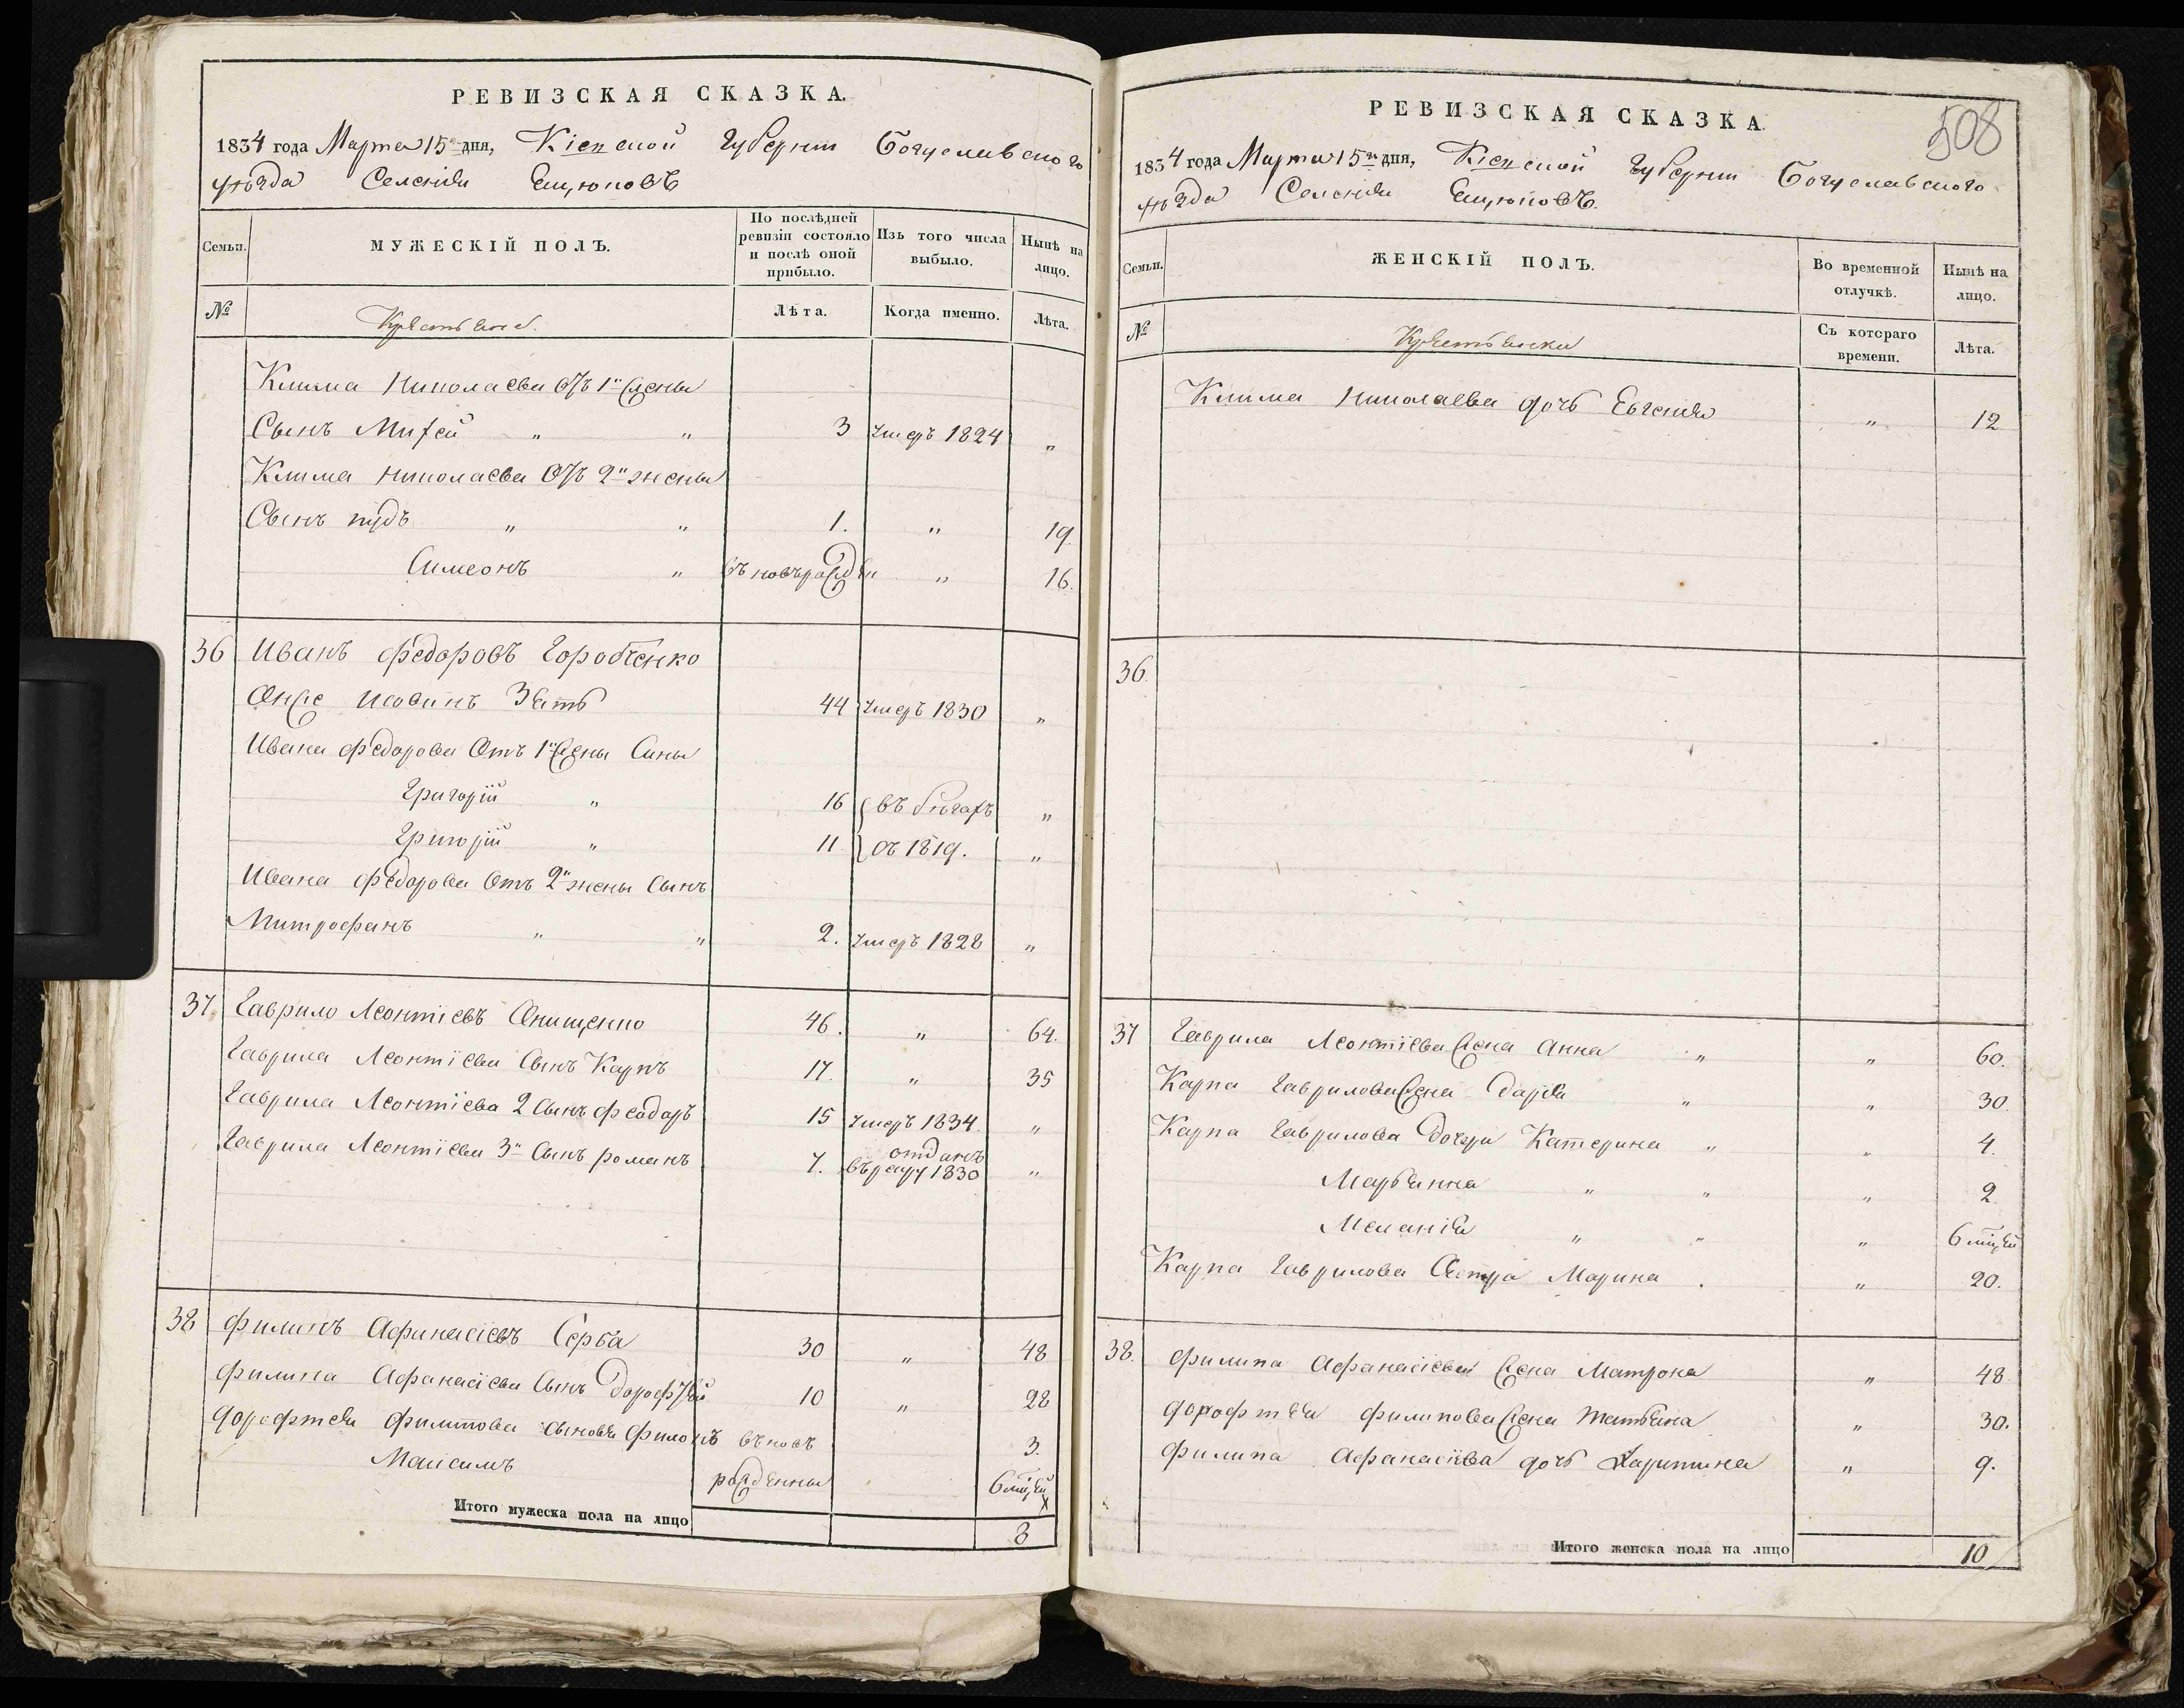 РЕВИЗСКАЯ СКАЗКА.
1834 года Марта 15 дня, Кіевской Губерніи Богуславского
уѣзда Селенія
Семьи. МУЖЕСКІЙ ПОЛЪ. По послѣдней ревизіи состояло и послѣ оной прибыло. Изъ того числа выбыло. Нынѣ на лицо.
№ Крестьяне. Лѣта. Когда именно. Лѣта.
Клима Николаева отъ 1й жены
Сынъ Мифей " " 3 умеръ 1824 "
Клима Николаева отъ 2й жены
Сынъ " " 1. " 19.
Симеонъ " вновь рожден " 16.
36 Иванъ Федоровъ Горобченко
Онже Зять 44 умеръ 1830 "
Ивана Федорова Отъ 1й жены Сины
Григорій " 16 въ бѣгахъ "
Григорій " 11 съ 1819. "
Ивана Федорова Отъ 2й жены Сынъ
Митрофанъ " " 2. умеръ 1828 "
37. Гаврило Леонтіевъ Онищенко 46. " 64.
Гаврила Леонтіева Сынъ Карпъ 17. " 35
Гаврила Леонтіева 2 Сынъ Феодоръ 15 умеръ 1834. "
Гаврила Леонтіева 3й Сынъ романъ 7. отданъ
въ 1830 "
38 Филипъ Афанасіевъ Серба 30 " 48
Филипа Афанасіева Сынъ Дорофтей 10 " 28
Дорофтея Филипова сыновья Филонъ вновь 3.
Максимъ рожденны 6 міцей
Итого мужеска пола на лицо 8
508
РЕВИЗСКАЯ СКАЗКА.
1834 года Марта 15го дня, Кіевской Губерніи Богуславского
уѣзда Селенія
Семьи. ЖЕНСКІЙ ПОЛЪ. Во временной отлучкѣ. Нынѣ на лицо.
№ Крестьянки Съ котораго времени. Лѣта.
Клима Николаева дочь Евгенія " 12
36.
37 Гаврила Леонтіева жена Анна " " 60.
Карпа Гаврилова жена Дарія " " 30.
Карпа Гаврилова дочери Катерина " " 4.
Марьянна " " " 2.
Меланія " " " 6 міцей
Карпа Гаврилова Сестра Марина . " 20.
38. Филипа Афанасіева жена Матрона " 48.
Дорофтея Филипова жена Татьяна " 30.
Филипа Афанасіева дочь Харитина " 9.
Итого женска пола на лицо 10